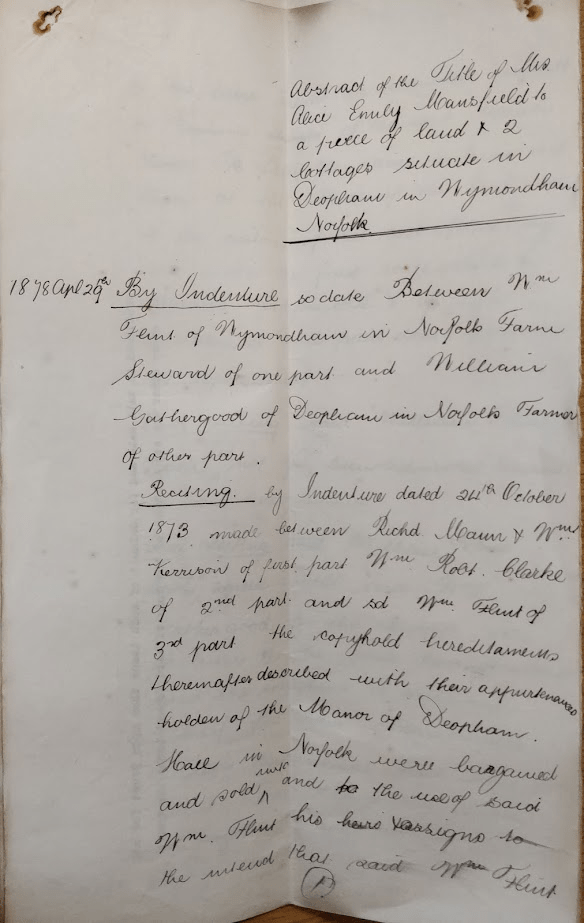 Abstract of the Title of Mrs
Alice Emily Mansfield to
a piece of land & 2
Cottages situate in
Deopham in Wymondham
Norfolk.
1878 Apl 29th By Indenture so date Between Wm
Flint of Wymondham in Norfolk Farm
Steward of one part and William
Gathergood of Deopham in Norfolk Farmer
of other part.
Reciting by Indenture dated 24th October
1873 made between Richd. Mann & Wm
Kerrison of first part Wm Robt. Clarke
of 2nd part and sd Wm. Flint of
3rd part the copyhold hereditaments
thereinafter described with their appurtenances
holden of the Manor of Deopham
Hall in Norfolk were bargained
and sold unto and to the use of said
Wm. Flint his heirs & assigns to
the intend that said Wm Flint
1